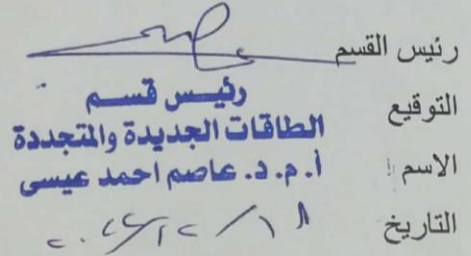 رئيس القسم
التوقيع
رئيس قسم
الطاقات الجديدة والمتجددة
الاسم
أ.م.د. عاصم احمد عيسى
التاريخ